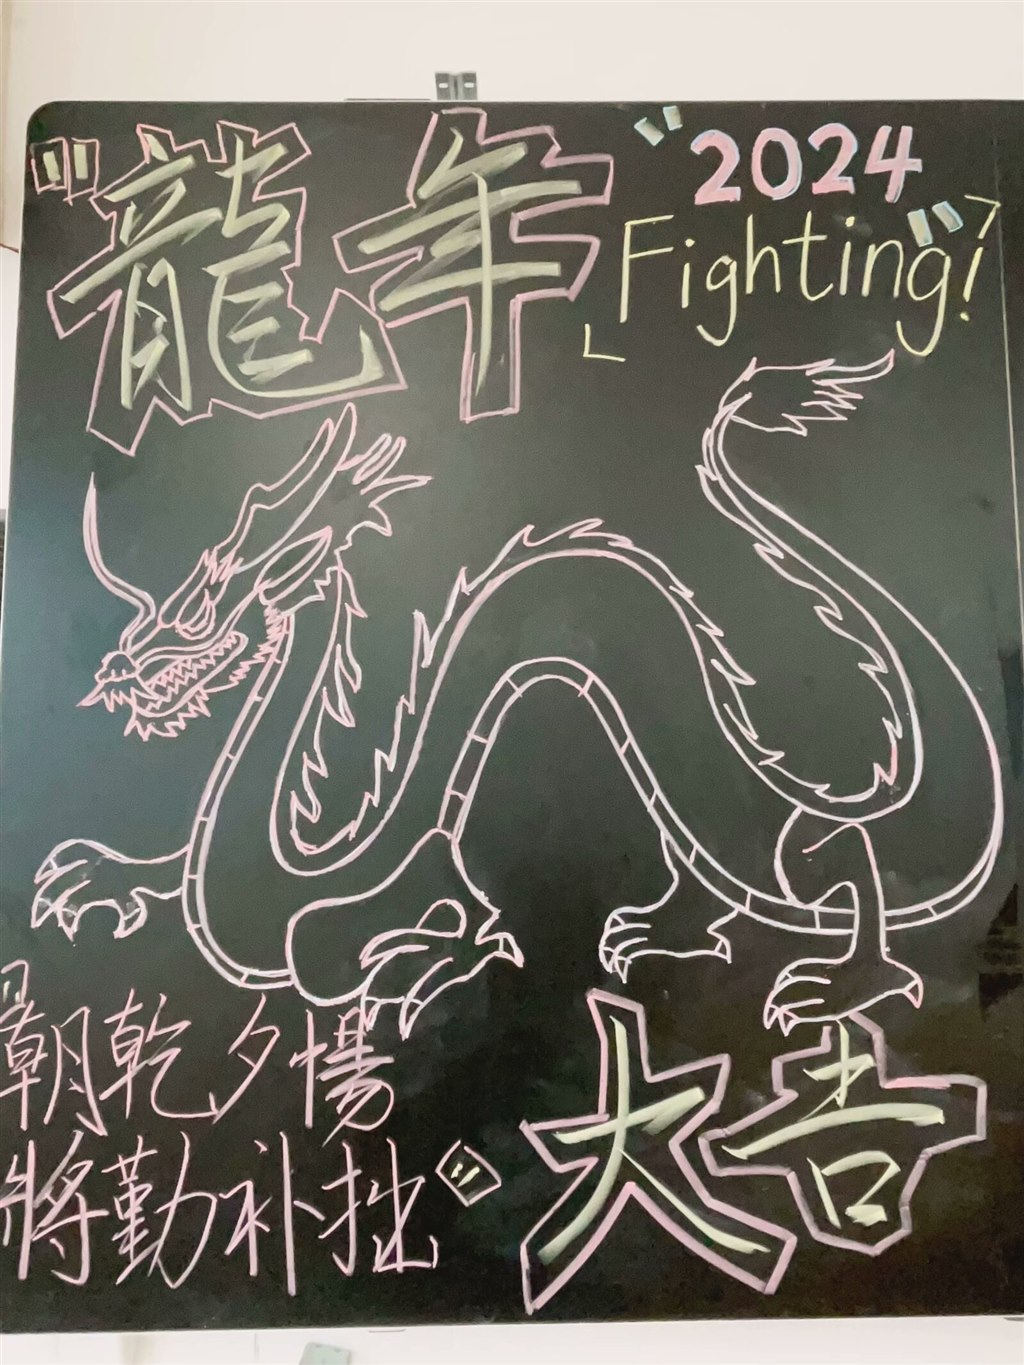 “龍年
“2024
「Fighting!”┐
“朝乾夕惕
將勤补拙”
大吉